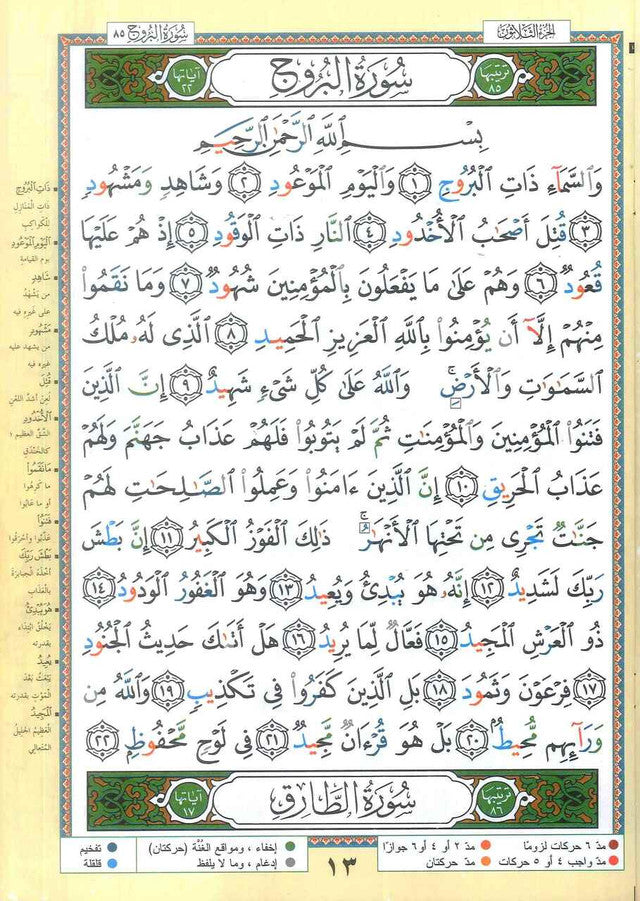 الجزء الثلاثون
سورة البروج ٨٥
ترتيبها ٨٥
سُورَةُ البُرُوجِ
آياتها ٢٢
بِسْمِ ٱللَّهِ ٱلرَّحْمَٰنِ ٱلرَّحِيمِ
وَٱلسَّمَآءِ ذَاتِ ٱلْبُرُوجِ ١ وَٱلْيَوْمِ ٱلْمَوْعُودِ ٢ وَشَاهِدٍ وَمَشْهُودٍ
٣ قُتِلَ أَصْحَٰبُ ٱلْأُخْدُودِ ٤ ٱلنَّارِ ذَاتِ ٱلْوَقُودِ ٥ إِذْ هُمْ عَلَيْهَا
قُعُودٌ ٦ وَهُمْ عَلَىٰ مَا يَفْعَلُونَ بِٱلْمُؤْمِنِينَ شُهُودٌ ٧ وَمَا نَقَمُوا۟
مِنْهُمْ إِلَّآ أَن يُؤْمِنُوا۟ بِٱللَّهِ ٱلْعَزِيزِ ٱلْحَمِيدِ ٨ ٱلَّذِى لَهُۥ مُلْكُ
ٱلسَّمَٰوَٰتِ وَٱلْأَرْضِ ۚ وَٱللَّهُ عَلَىٰ كُلِّ شَىْءٍ شَهِيدٌ ٩ إِنَّ ٱلَّذِينَ
فَتَنُوا۟ ٱلْمُؤْمِنِينَ وَٱلْمُؤْمِنَٰتِ ثُمَّ لَمْ يَتُوبُوا۟ فَلَهُمْ عَذَابُ جَهَنَّمَ وَلَهُمْ
عَذَابُ ٱلْحَرِيقِ ١٠ إِنَّ ٱلَّذِينَ ءَامَنُوا۟ وَعَمِلُوا۟ ٱلصَّٰلِحَٰتِ لَهُمْ
جَنَّٰتٌ تَجْرِى مِن تَحْتِهَا ٱلْأَنْهَٰرُ ۚ ذَٰلِكَ ٱلْفَوْزُ ٱلْكَبِيرُ ١١ إِنَّ بَطْشَ
رَبِّكَ لَشَدِيدٌ ١٢ إِنَّهُۥ هُوَ يُبْدِئُ وَيُعِيدُ ١٣ وَهُوَ ٱلْغَفُورُ ٱلْوَدُودُ ١٤
ذُو ٱلْعَرْشِ ٱلْمَجِيدُ ١٥ فَعَّالٌ لِّمَا يُرِيدُ ١٦ هَلْ أَتَىٰكَ حَدِيثُ ٱلْجُنُودِ
١٧ فِرْعَوْنَ وَثَمُودَ ١٨ بَلِ ٱلَّذِينَ كَفَرُوا۟ فِى تَكْذِيبٍ ١٩ وَٱللَّهُ مِن
وَرَآئِهِم مُّحِيطٌ ٢٠ بَلْ هُوَ قُرْءَانٌ مَّجِيدٌ ٢١ فِى لَوْحٍ مَّحْفُوظٍ ٢٢
ترتيبها ٨٦
سُورَةُ الطَّارِقِ
آياتها ١٧
ذَاتِ ٱلْبُرُوجِ
ذات المنازل
للكواكب
ٱلْيَوْمِ ٱلْمَوْعُودِ
يوم القيامة
شَاهِدٍ
من يشهد
على غيره فيه
مَشْهُودٍ
من يشهد عليه
غيره فيه
قُتِلَ
لُعِنَ أشدّ اللعن
ٱلْأُخْدُودِ
الشق العظيم ؛
كالخندق
مَا نَقَمُوا۟
ما كرهوا
أو ما عابوا
فَتَنُوا۟
عذّبوا وأحرقوا
بَطْشَ رَبِّكَ
أخذه الجبابرة
بالعذاب
هُوَ يُبْدِئُ
يخلق ابتداء
بقدرته
يُعِيدُ
يبعث بعد
الموت بقدرته
ٱلْمَجِيدُ
العظيم الجليل
المتعالي
مدّ ٦ حركات لزومًا
مدّ ٢ أو ٤ أو ٦ جوازًا
إخفاء ، ومواقع الغُنَّة (حركتان)
تفخيم
مدّ واجب ٤ أو ٥ حركات
مدّ حركتان
إدغام ، وما لا يُلفظ
قلقلة
١٣